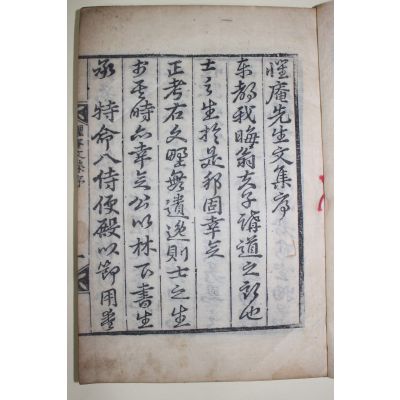 惺庵先生文集序
東都我晦翁夫子講道之所也
士之生於是邦固幸矣
正考右文野無遺逸則士之生
於其時亦幸矣公以林下書生
承 特命入侍便殿以節用愛